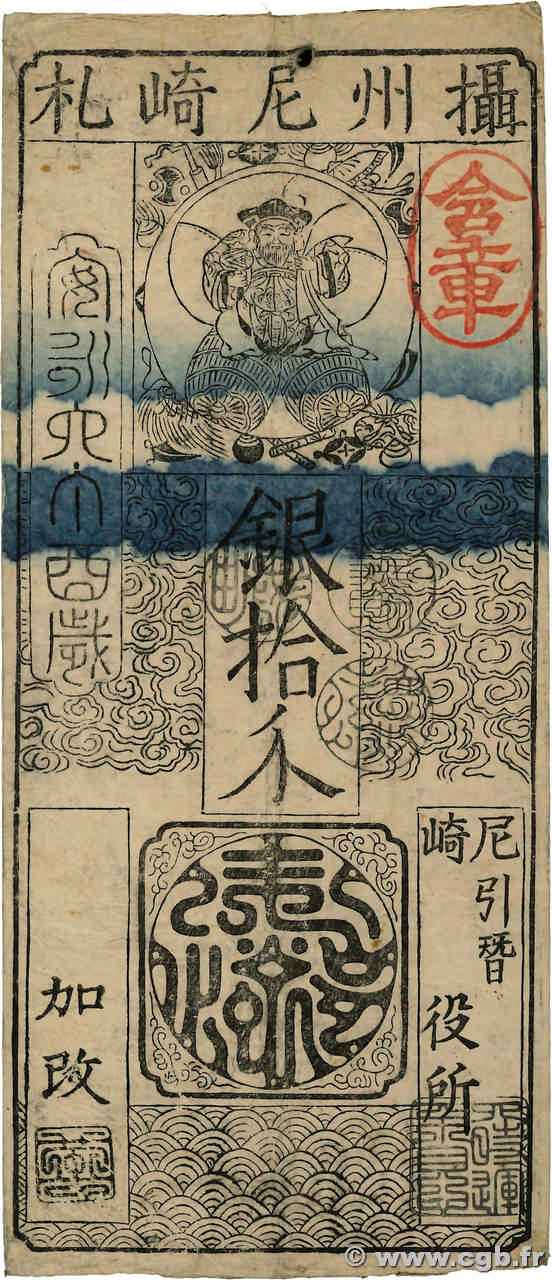 攝州尼崎札
含章
安永六丁酉歳
銀拾匁
尼崎引替役所
加改
© www.cgb.fr